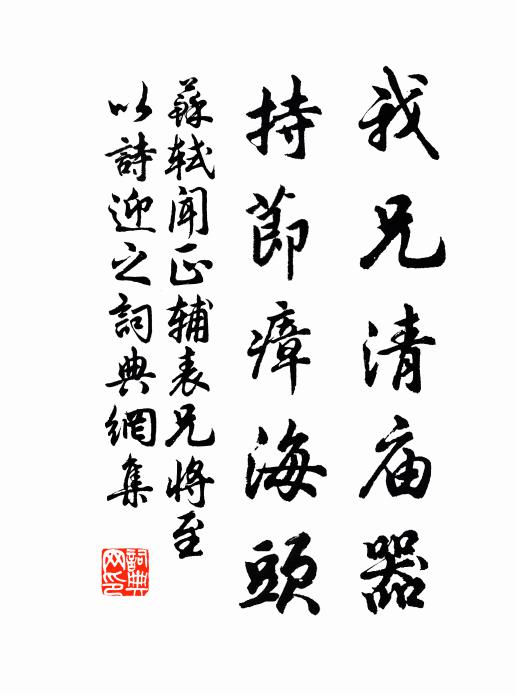 我兄清庙器
持節瘴海頭
蘇軾闻正辅表兄将至
以詩迎之詞典網集
詞典网印